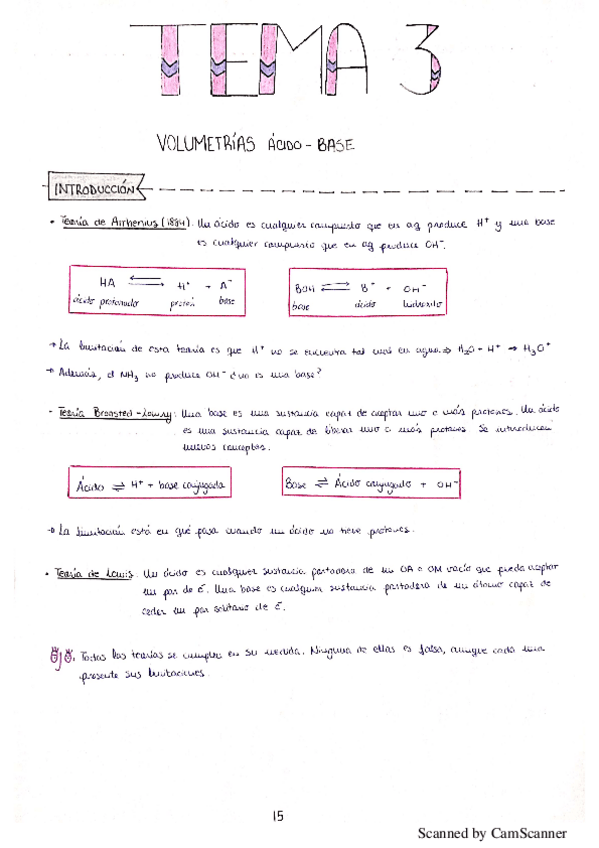 TEMA 3
VOLUMETRÍAS ÁCIDO - BASE
INTRODUCCIÓN
• Teoría de Arrhenius (1884). Un ácido es cualquier compuesto que en aq produce H⁺ y una base
es cualquier compuesto que en aq produce OH⁻.
HA ⇌ H⁺ + A⁻
ácido protonado protón base
BOH ⇌ B⁺ + OH⁻
base ácido hidroxilo
→ La limitación de esta teoría es que H⁺ no se encuentra tal cual en agua ⇒ H₂O + H⁺ → H₃O⁺
→ Además, el NH₃ no produce OH⁻ ¿no es una base?
• Teoría Bronsted-Lowry: Una base es una sustancia capaz de aceptar uno o más protones. Un ácido
es una sustancia capaz de liberar uno o más protones. Se introducen
nuevos conceptos.
Ácido ⇌ H⁺ + base conjugada
Base ⇌ Ácido conjugado + OH⁻
→ La limitación está en qué pasa cuando un ácido no tiene protones.
• Teoría de Lewis. Un ácido es cualquier sustancia portadora de un OA o OM vacío que pueda aceptar
un par de e⁻. Una base es cualquier sustancia portadora de un átomo capaz de
ceder un par solitario de e⁻.
Ojo. Todas las teorías se cumplen en su medida. Ninguna de ellas es falsa, aunque cada una
presente sus limitaciones.
15
Scanned by CamScanner